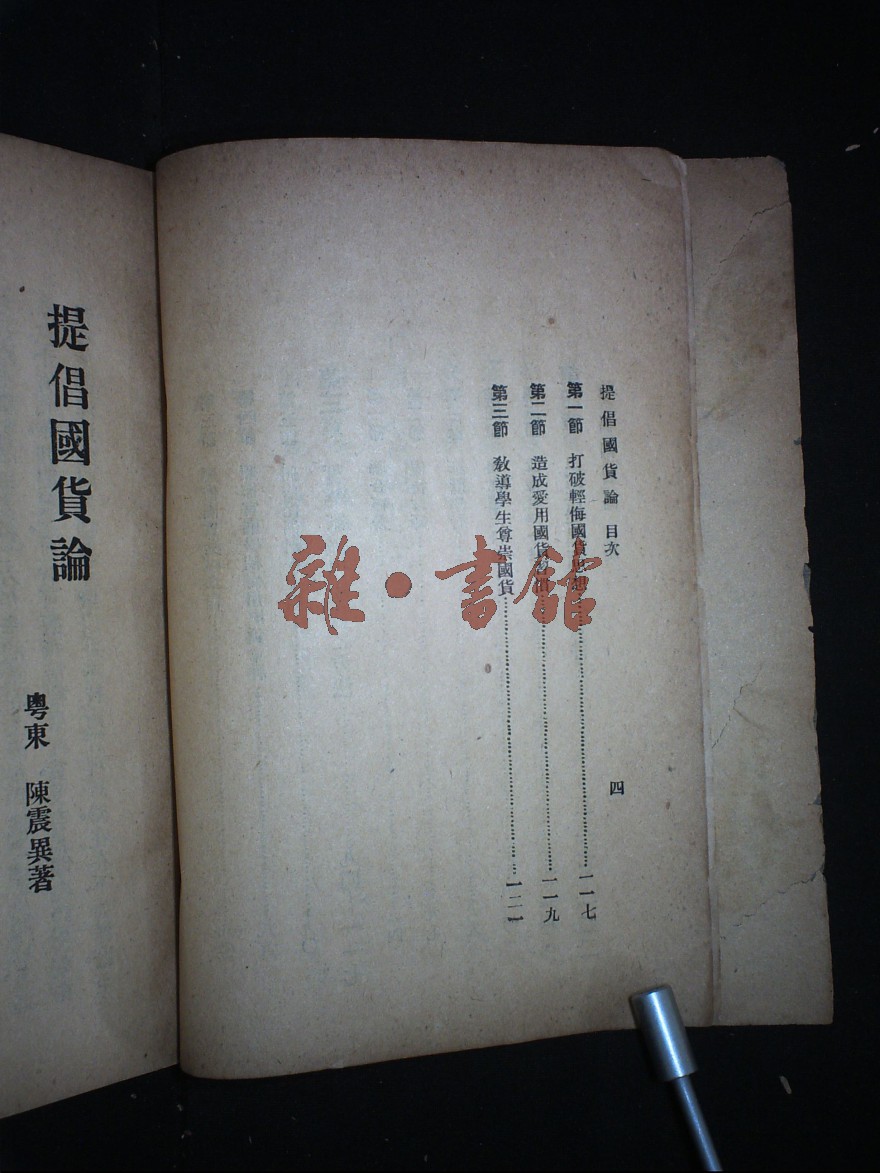 提倡國貨論 目次
四
第一節 打破輕侮國貨思想 一一七
第二節 造成愛用國貨習慣 一一九
第三節 教導學生尊崇國貨 一二一
提倡國貨論
粵東 陳震異著
雜·書館